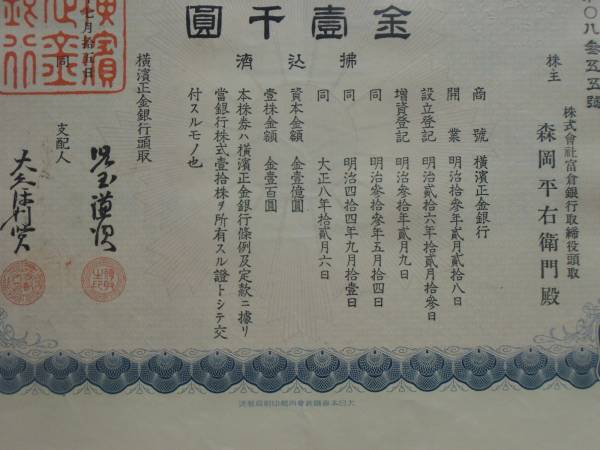 〇八参五五號
株主
株式會社富倉銀行取締役頭取
森岡平右衛門殿
金壹千圓
拂込濟
商號 橫濱正金銀行
開業 明治拾參年貳月貳拾八日
設立登記 明治貳拾六年拾貳月拾參日
增資登記 明治參拾年貳月九日
同 明治參拾參年五月拾四日
同 明治四拾四年九月拾壹日
同 大正八年拾貳月六日
資本金額 金壹億圓
壹株金額 金壹百圓
本株券ハ橫濱正金銀行條例及定款ニ據リ
當銀行株式壹拾株ヲ所有スル證トシテ交
付スルモノ也
七月拾五日
橫濱正金銀行頭取
同 支配人